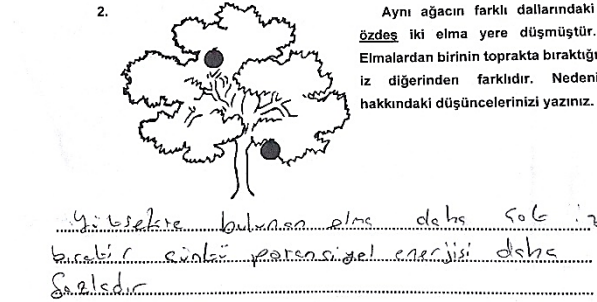 2.
Aynı ağacın farklı dallarındaki
özdeş iki elma yere düşmüştür.
Elmalardan birinin toprakta bıraktığı
iz diğerinden farklıdır. Nedeni
hakkındaki düşüncelerinizi yazınız.
Yüksekte bulunan elma daha çok iz
bırakır çünkü potansiyel enerjisi daha
fazladır